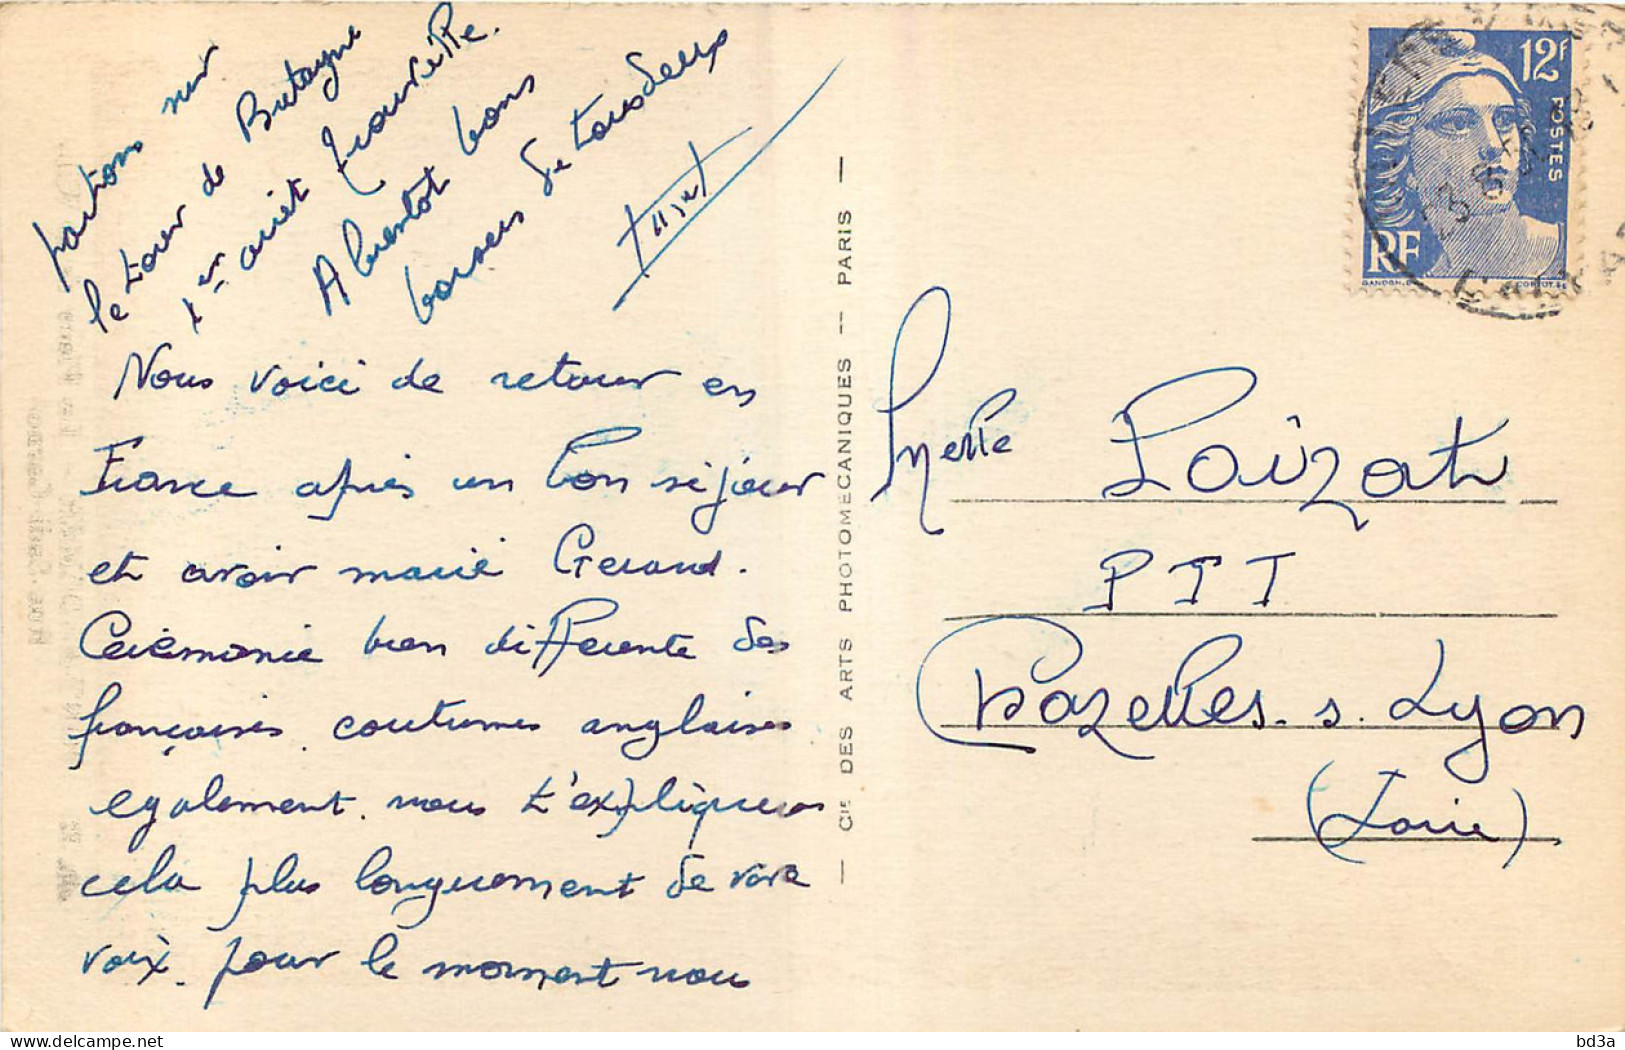 Nous voici de retour en
France après un bon séjour
et avoir marié Gerard.
Cérémonie bien differente des
françaises. coutumes anglaises
egalement. nous t'expliquerons
cela plus longuement de vive
voix. pour le moment nous
partons sur
le tour de Bretagne
1er arrêt Trouville.
A bientot bons
baisers de tous deux
Melle Loizat
PTT
Chazelles. s. Lyon
(Loire)
— Cie DES ARTS PHOTOMECANIQUES -- PARIS —
12F
POSTES
RF
GANDON
CORTOT
bd3a